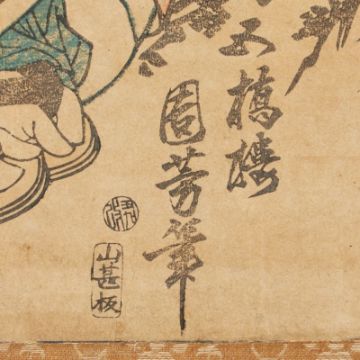 五橋楼
国芳筆
山甚板